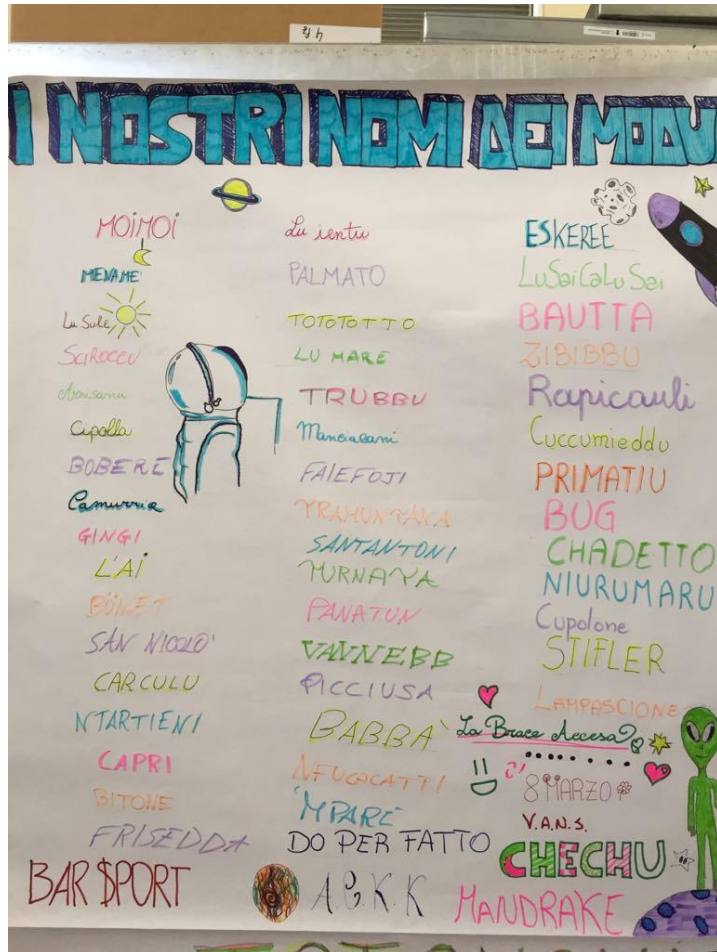 I NOSTRI NOMI DEI MODU
MOIMOI
MENAME'
Lu Sule
SCIROCCU
Cipolla
BOBERÉ
Camurria
GINGI
L'AI
BÖNET
SAN NICOLO'
CARCULU
NTARTIENI
CAPRI
BITONE
FRISEDDA
BAR $PORT
Lu ientu
PALMATO
TOTOTOTTO
LU MARE
TRUBBU
Manciacani
FAIEFOJI
TRAMUNTANA
SANTANTONI
TURNATA
PANATUN
VANNEBB
PICCIUSA
BABBA'
NFUGACATTI
'MPARE
DO PER FATTO
A.G.K.K
ESKEREE
LuSaiCaLuSai
BAUTTA
ZIBIBBU
Rapicauli
Cuccumieddu
PRIMATIU
BUG
CHADETTO
NIURUMARU
Cupolone
STIFLER
LAMPASCIONE
La Brace Accesa
8 MARZO
V.A.N.S.
CHECHU
MANDRAKE